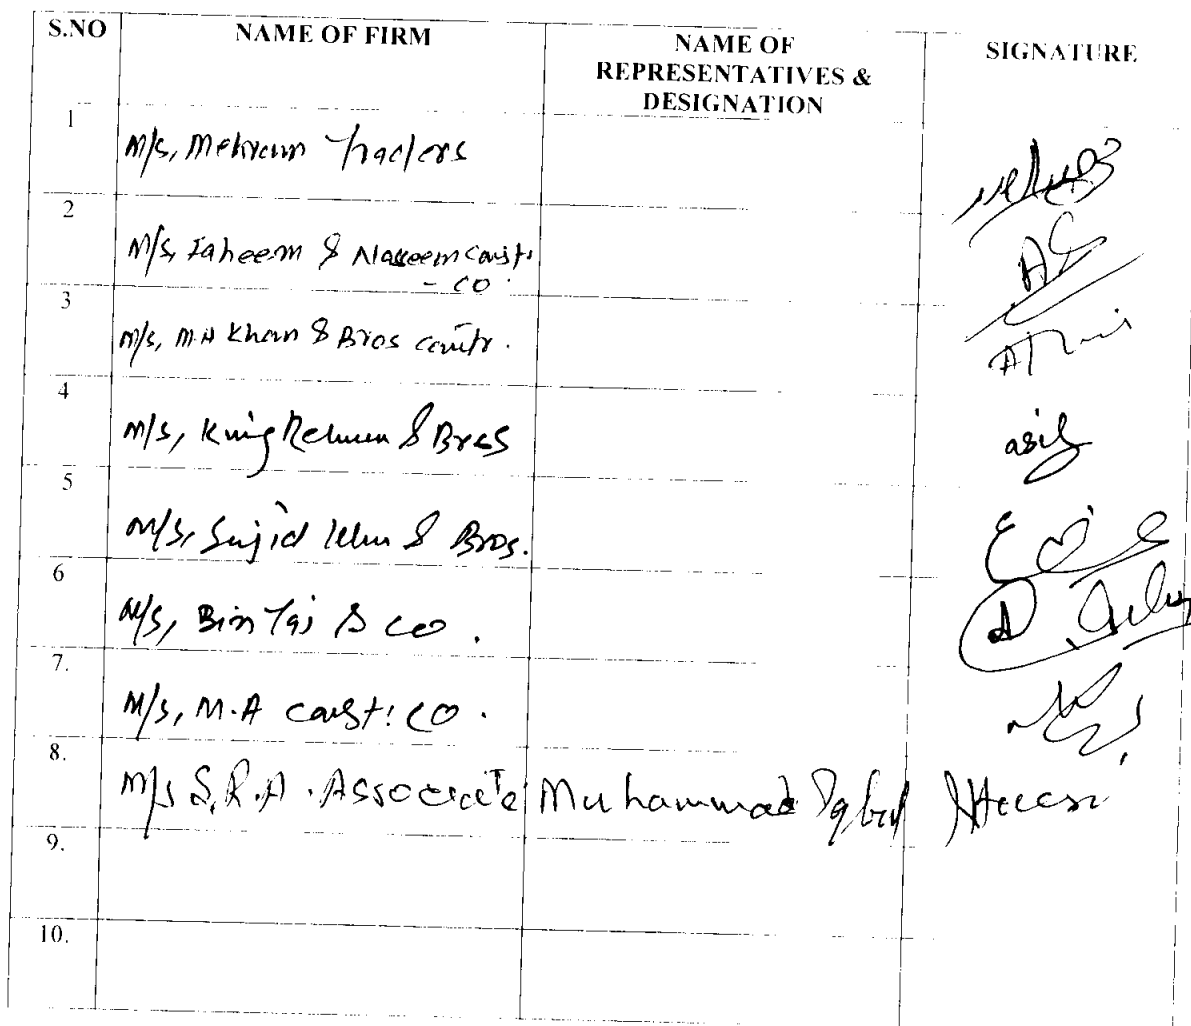 S.NO NAME OF FIRM NAME OF SIGNATURE
REPRESENTATIVES &
DESIGNATION
1 M/s, Mehran Traders
2 M/s, Faheem & Naseem Const:
- CO.
3 M/s, M.A Khan & Bros contr.
4 M/s, King Rehman & Bros asif
5 M/s, Sajid & Bros.
6 M/s, Bin Taj & CO.
7. M/s, M.A const: CO.
8. M/s S.R.A. Associate Muhammad Iqbal
9.
10.